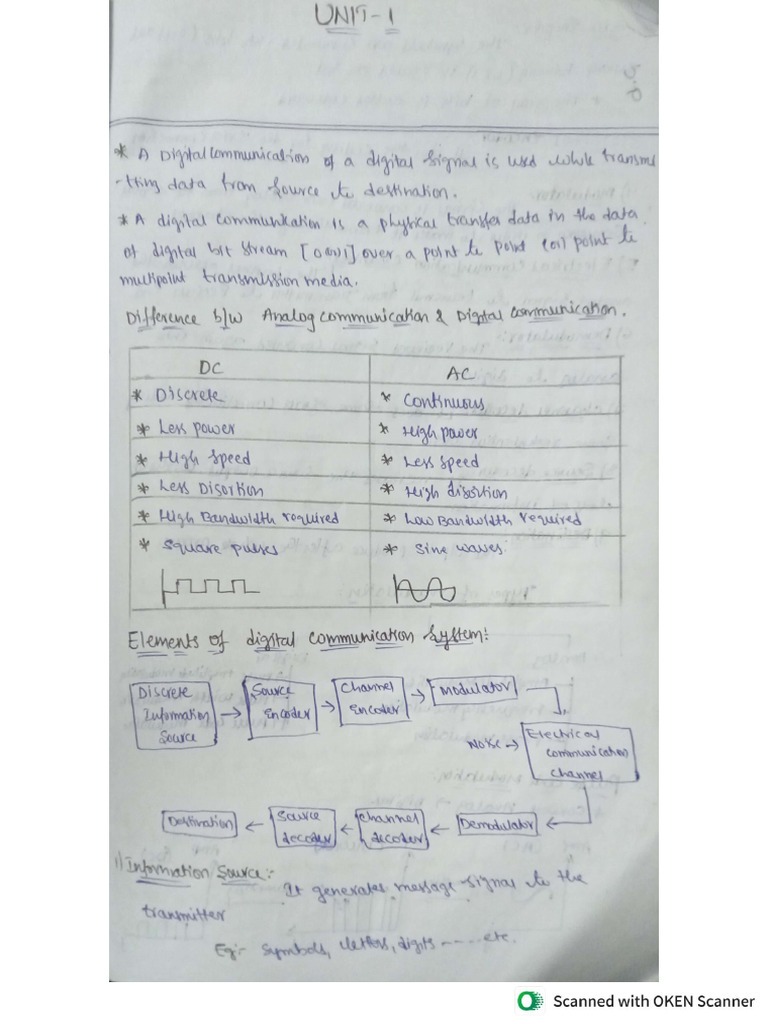 UNIT-1
* A Digital communication of a digital signal is used while transmi
-tting data from source to destination.
* A digital communication is a physical transfer data in the data
of digital bit stream [0 (or) 1] over a point to point (or) point to
multipoint transmission media.
Difference b/w Analog communication & Digital communication.
DC AC
* Discrete * Continuous
* Less power * High power
* High speed * Less speed
* Less Disortion * High disortion
* High Bandwidth required * Low Bandwidth required
* Square pulses * Sine waves.
Elements of digital communication system:
Discrete Information Source
Source Encoder
Channel Encoder
Modulator
Noise
Electrical communication channel
Destination
Source decoder
channel decoder
Demodulator
1) Information Source:-
It generates message signal to the
transmitter
Eg:- symbols, letters, digits ----- etc.
Scanned with OKEN Scanner